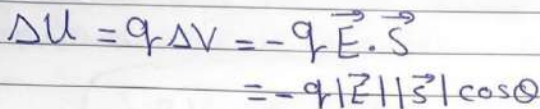 ΔU = qΔV = -q E⃗ . S⃗
= -q|E⃗||S⃗| cosθ